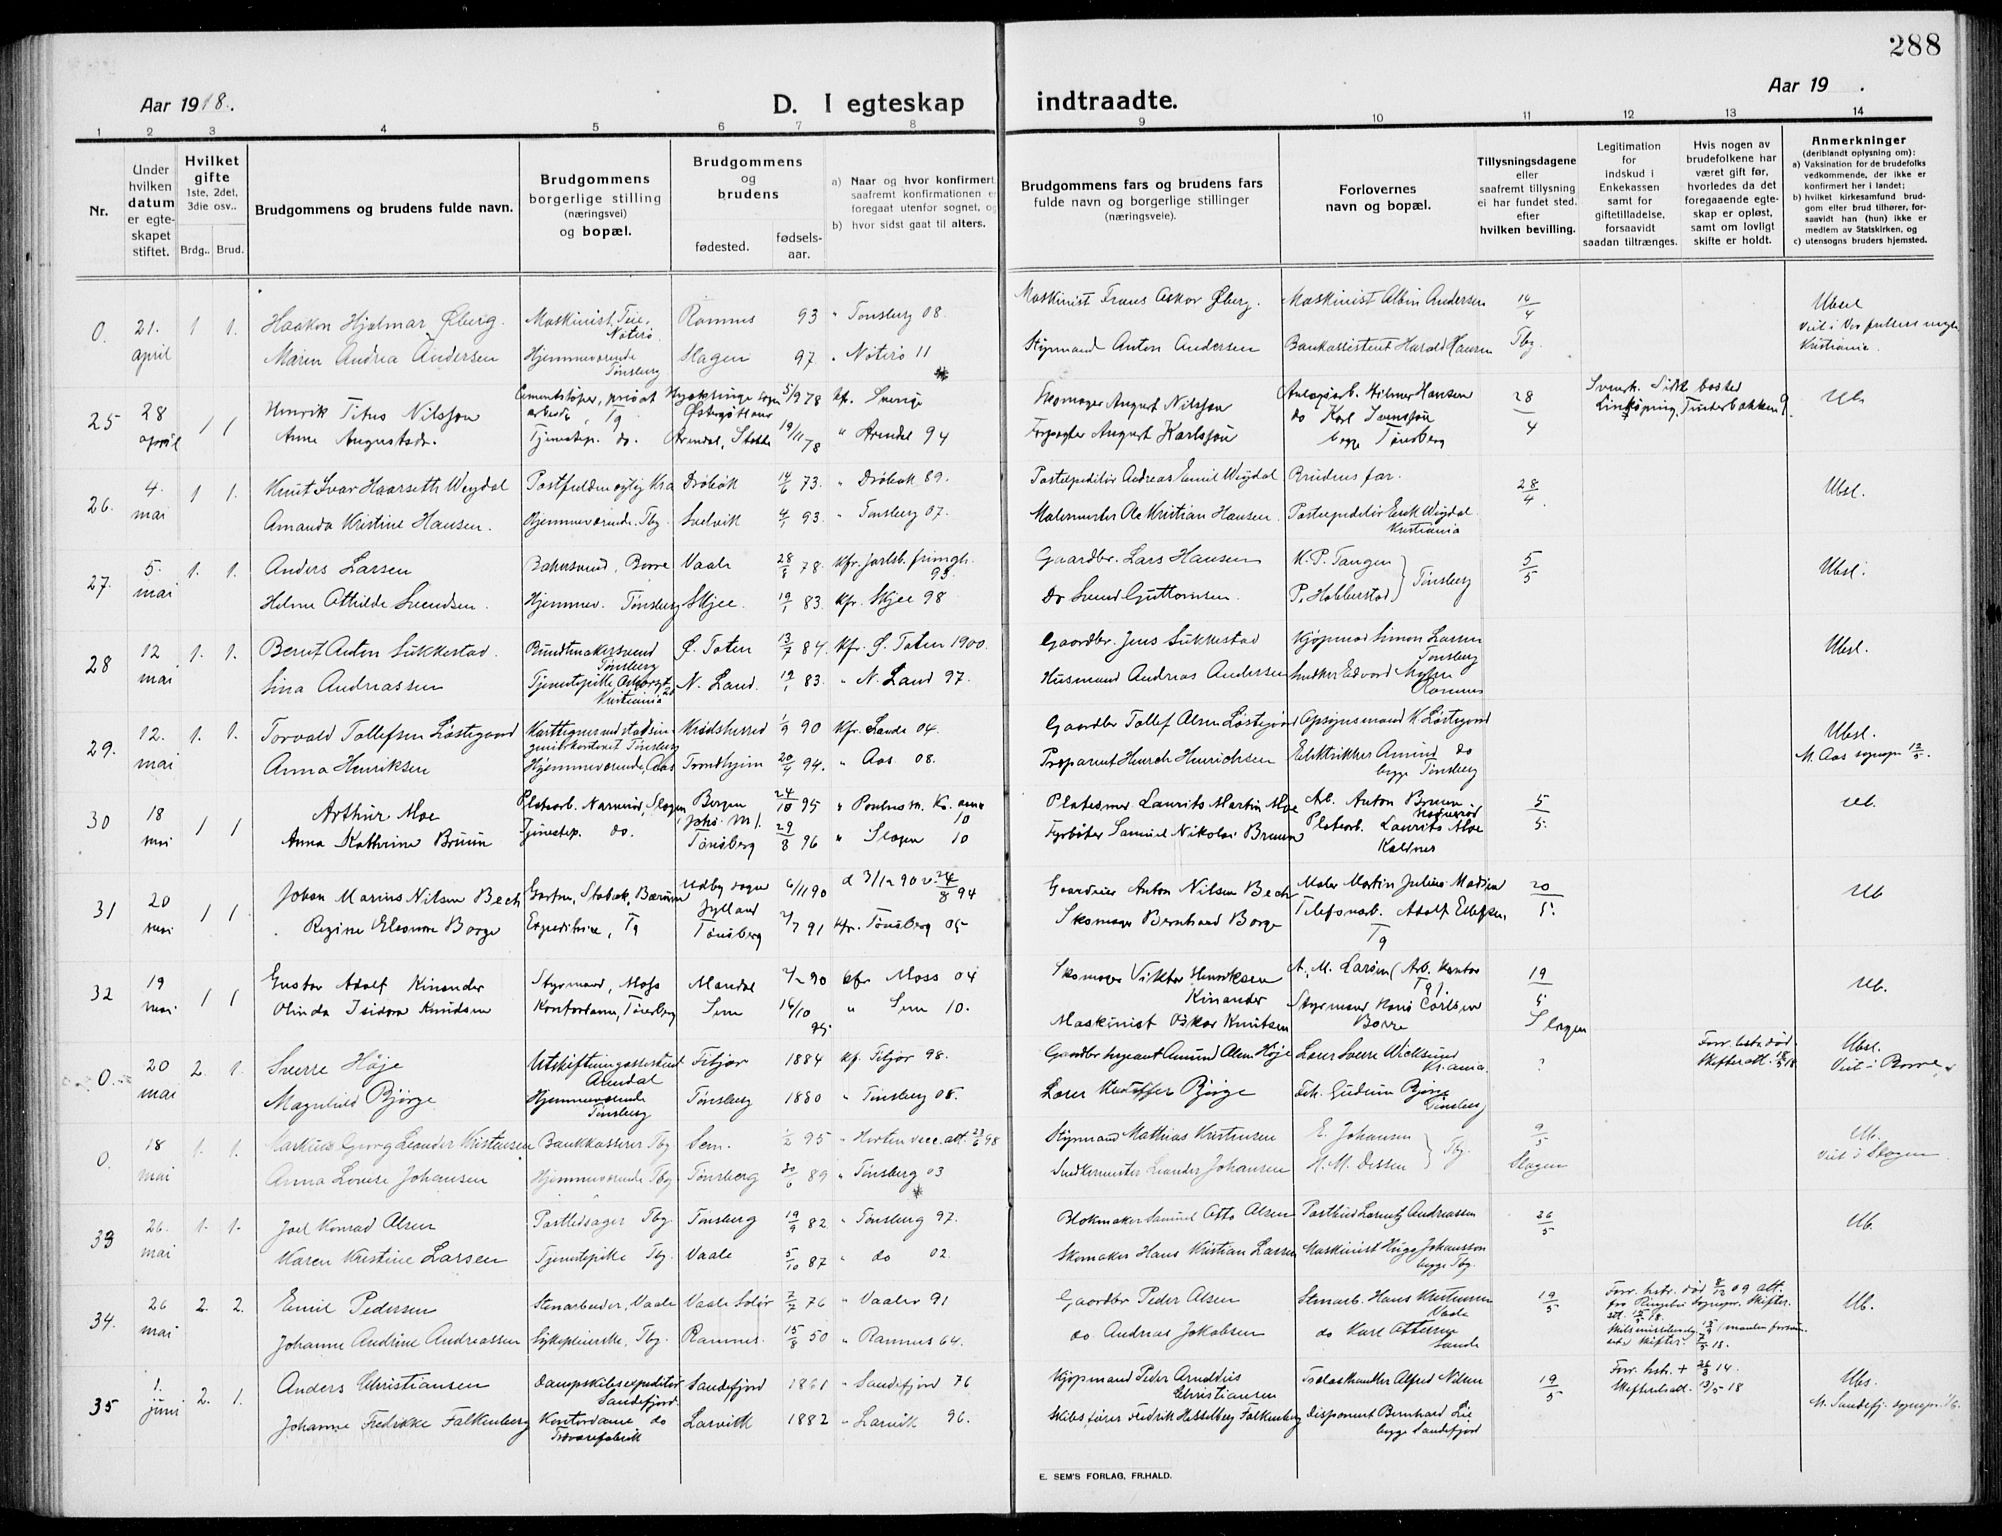 288
Aar 1918.
D. I egteskap indtraadte.
Aar 19 .
1 2 3 4 5 6 7 8 9 10 11 12 13 14
Nr.
Under hvilken datum er egteskapet stiftet.
Hvilket gifte
1ste, 2det, 3die osv..
Brdg.. Brud.
Brudgommens og brudens fulde navn.
Brudgommens borgerlige stilling (næringsvei) og bopæl.
Brudgommens og brudens
fødested.
fødsels-aar.
a) Naar og hvor konfirmert,
saafremt konfirmationen e
foregaat utenfor sognet, og
b) hvor sidst gaat til alters.
Brudgommens fars og brudens fars
fulde navn og borgerlige stillinger
(næringsveie).
Forlovernes
navn og bopæl.
Tillysningsdagene
eller
saafremt tillysning
ei har fundet sted.
efter
hvilken bevilling.
Legitimation
for
indskud i
Enkekassen
samt for
giftetilladelse,
forsaavidt
saadan tiltrænges.
Hvis nogen av
brudefolkene har
været gift før,
hvorledes da det
foregaaende egte-
skap er opløst,
samt om lovligt
skifte er holdt.
Anmerkninger
(deriblandt oplysning om):
a) Vaksination for de brudefolks
vedkommende, der ikke er
konfirmert her i landet;
b) hvilket kirkesamfund brud-
gom eller brud tilhører, for-
saavidt han (hun) ikke er
medlem av Statskirken, og
c) utensogns bruders hjemsted.
0. 21. april 1 1. Haakon Hjalmar Øberg. Maskinist, Teie, Nøterö Ramnes 93 " Tønsberg 08. Maskinist Frans Oskar Øberg. Maskinist Albin Andersen 14/4 Ubsl.
Maren Andrea Andersen Hjemmeværende Tønsberg Slagen 97. " Nøterö 11 Styrmand Anton Andersen Bankassistent Harald Hansen Tbg. Kristiania.
25 28 april 1 1 Henrik Titus Nilsson Cementstøper, Tg 5/9 78 kf. Sverige Skomager August Nilsson Hilmer Hansen 28/4 Linköping, Ub.
Anna Augustadr. Tjenestep. do. Arendal, 19/11 78 " Arendal 94 Forpagter August Karlsson do Karl Svensson begge Tønsberg
26. 4. mai 1 1. Knut Ivar Haarseth Weydal Kra Drøbak 14/6 73. " Drøbak 89. Postexpeditör Andreas Emil Weydal Brudens far. 28/4. Ubsl.
Amanda Kristine Hansen. Hjemmeværende. Tbg. Svelvik 4/1 93. " Tønsberg 07. Malermester Ole Kristian Hansen. Postexpeditör Erik Weydal Kristiania
27. 5. mai 1. 1. Anders Larsen Bakersvend, Borre Vaale 28/8 78. kfr. Jarlsb. frimgh. 93. Gaardbr. Lars Hansen K. P. Tangen 5/5 Ubsl.
Helene Athilde Svendsen. Hjemmev. Tønsberg Skjee. 19/1 83. kfr. Skjee 98 Do Svend Guttormsen. P. Hobberstad Tønsberg
28 12 mai 1. 1. Bernt Anton Sukkestad. Bundtmakersvend Tønsberg Ø. Toten 13/7 84. kfr. Ø. Toten 1900. Gaardbr. Jens Sukkestad Kjøpmnd Simon Larsen Tønsberg Ubsl.
Lina Andreassen Tjenestepike Kristiania N. Land. 19/1 83. " N. Land 97. Husmand Andreas Andersen Snedker Edvard Ramnes
29. 12. mai 1. 1. Torvald Tollefsen Løstegaard Tønsberg Krødsherred 1/9 90 kfr. Sande 04. Gaardbr Tollef Olsen Løstegaard Opsynsmand K. Løstegaard Ubsl.
Anna Henriksen Hjemmeværende, Aas Trondhjem 20/4 94. " Aas 08. Henrichsen Elektrikker Amund do begge Tønsberg M. Aas sognepr. 12/5.
30 18 mai 1 1 Arthur Moe Platearb. Slagen Bergen 24/10 95 10 Platesmed Laurits Martin Moe Arb. Anton Bruun 5/5. Ub.
Anna Kathrine Bruun Tjenestep. do. Tønsberg 29/8 96 " Slagen 10 Fyrbøter Samuel Nikolai Bruun Platearb. Laurits Moe Kaldnes
31 20 mai 1 1 Johan Marius Nilsen Bech Gartner, Stabæk, Bærum Udby sogn Jylland 6/11 90 d 3/12 90 v. 24/8 94 Gaardeier Anton Nilsen Bech Maler Martin Julius Madsen 20/5. Ub
Regine Eleonore Borge Expeditrice, Tg Tønsberg 2/7 91 kfr. Tønsberg 05 Skomager Bernhard Borge Telefonarb. Adolf Ellefsen, Tg
32 19 mai 1 1 Gustav Adolf Kinander Styrmand, Moss 2/2 90 kfr Moss 04 Skomager Viktor Henriksen Kinander A. M. Larsen (Arb. kontor Tg). 19/5 Slagen Ub.
Olinda Isidora Knudsen Kontordame, Tønsberg Sem 16/10 95 " Sem 10. Maskinist Oskar Knutsen Styrmand Hans Carlsen Borre
0. 20 mai 2. 1. Sverre Høje Utskiftningsassistent Arendal Fitjar 1884 kf. Fitjar 98. Gaardbr sergeant Amund Olsen Høje Kr.ania. ? Forr. hstr død. Skifteatt. 18/5 18. Ubsl. Viet i Borre
Magnhild Bjørge Hjemmeværende Tønsberg Tønsberg 1880 " Tønsberg 08. Lærer Kristoffer Bjørge Frk. Gudrun Bjørge Tønsberg
0. 18 mai 1. 1. Markus Georg Leander Kristensen Bankkasserer Tbg Sem. 1/2 95 " Horten vacc. att. 23/6 98 Styrmand Mathias Kristensen E. Johansen 9/5 Slagen Ub. Viet i Slagen
Anna Lovise Johansen Hjemmeværende Tbg Tønsberg 20/6 89 " Tønsberg 03 Snedkermester Leander Johansen M. M. Dessen Tbg.
33 26. mai 1. 1. Joel Konrad Olsen Postledsager Tbg Tønsberg 19/9 82 " Tønsberg 97. Blokmaker Samuel Otto Olsen Postbud Lorentz Andreassen 26/5 Ub.
Karen Kristine Larsen Tjenestepike Tbg. Vaale 5/10 87 " do 02. Skomaker Hans Kristian Larsen Maskinist Hugo Johansson begge Tbg.
34. 26 mai 2. 2. Emil Pedersen Stenarbeider, Vaale Vaaler Solør 7/7 76 " Vaaler 91 Gaardbr Peder Olsen Stenarb. Hans Kristensen Vaale 19/5 Forr. hstr. død 8/12 09 att. fra Ringebu Sognepr. Skifteatt. 15/5 18. Ub.
Johanne Andrine Andreassen Sykepleierske, Tbg. Ramnes. 15/8 50 " Ramnes 64. do. Andreas Jakobsen do Karl Ottersen Sande
35 1. juni 2. 1. Anders Christiansen Dampskibsexpeditör Sandefjord Sandefjord 1861 " Sandefjord 76 Kjøpmand Peder Arnoldus Christiansen Alfred Nilsen 19/5 Forr. hstr. + 26/3 14. Skifteatt. 13/5 18 Ubs.
Johanne Fredrikke Falkenberg Kontordame do Larvik 1882 " Larvik 96. Skibsfører Fredrik Hesselberg Falkenberg Disponent Bernhard Lie begge Sandefjord M. Sandefj. sognepr. 1/6.
E. SEM'S FORLAG, FR.HALD.